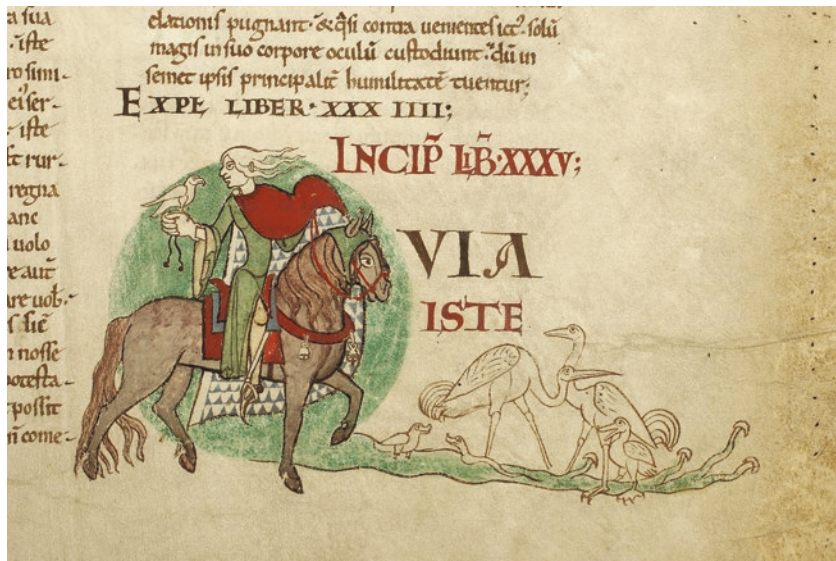 a sua
iste
ro simi-
ser-
iste
rur-
regna
anc
uolo
re aut
are uob·
nosse
potesta-
possit
come-
elationis pugnant· & q̃si contra uenientes ict᾽ solũ
magis in suo corpore oculũ custodiunt· dũ in
semet ipsis principalit̃ humilitatẽ tuentur;
EXPL̃ LIBER·XXX IIII;
INCIP̃ LIB̃·XXXV;
QVIA
ISTE